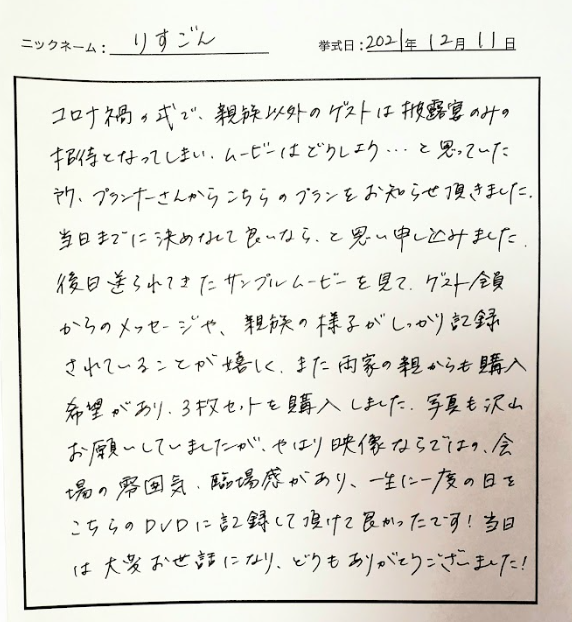 ニックネーム： りすごん 挙式日：2021年 12月 11日
コロナ禍の式で、親族以外のゲストは披露宴のみの
招待となってしまい、ムービーはどうしよう…と思っていた
所、プランナーさんからこちらのプランをお知らせ頂きました。
当日までに決めなくて良いなら、と思い申し込みました。
後日送られてきたサンプルムービーを見て、ゲスト全員
からのメッセージや、親族の様子がしっかり記録
されていることが嬉しく、また両家の親からも購入
希望があり、3枚セットを購入しました。写真も沢山
お願いしていましたが、やはり映像ならではの、会
場の雰囲気、臨場感があり、一生に一度の日を
こちらのDVDに記録して頂けて良かったです！当日
は大変お世話になり、どうもありがとうございました！